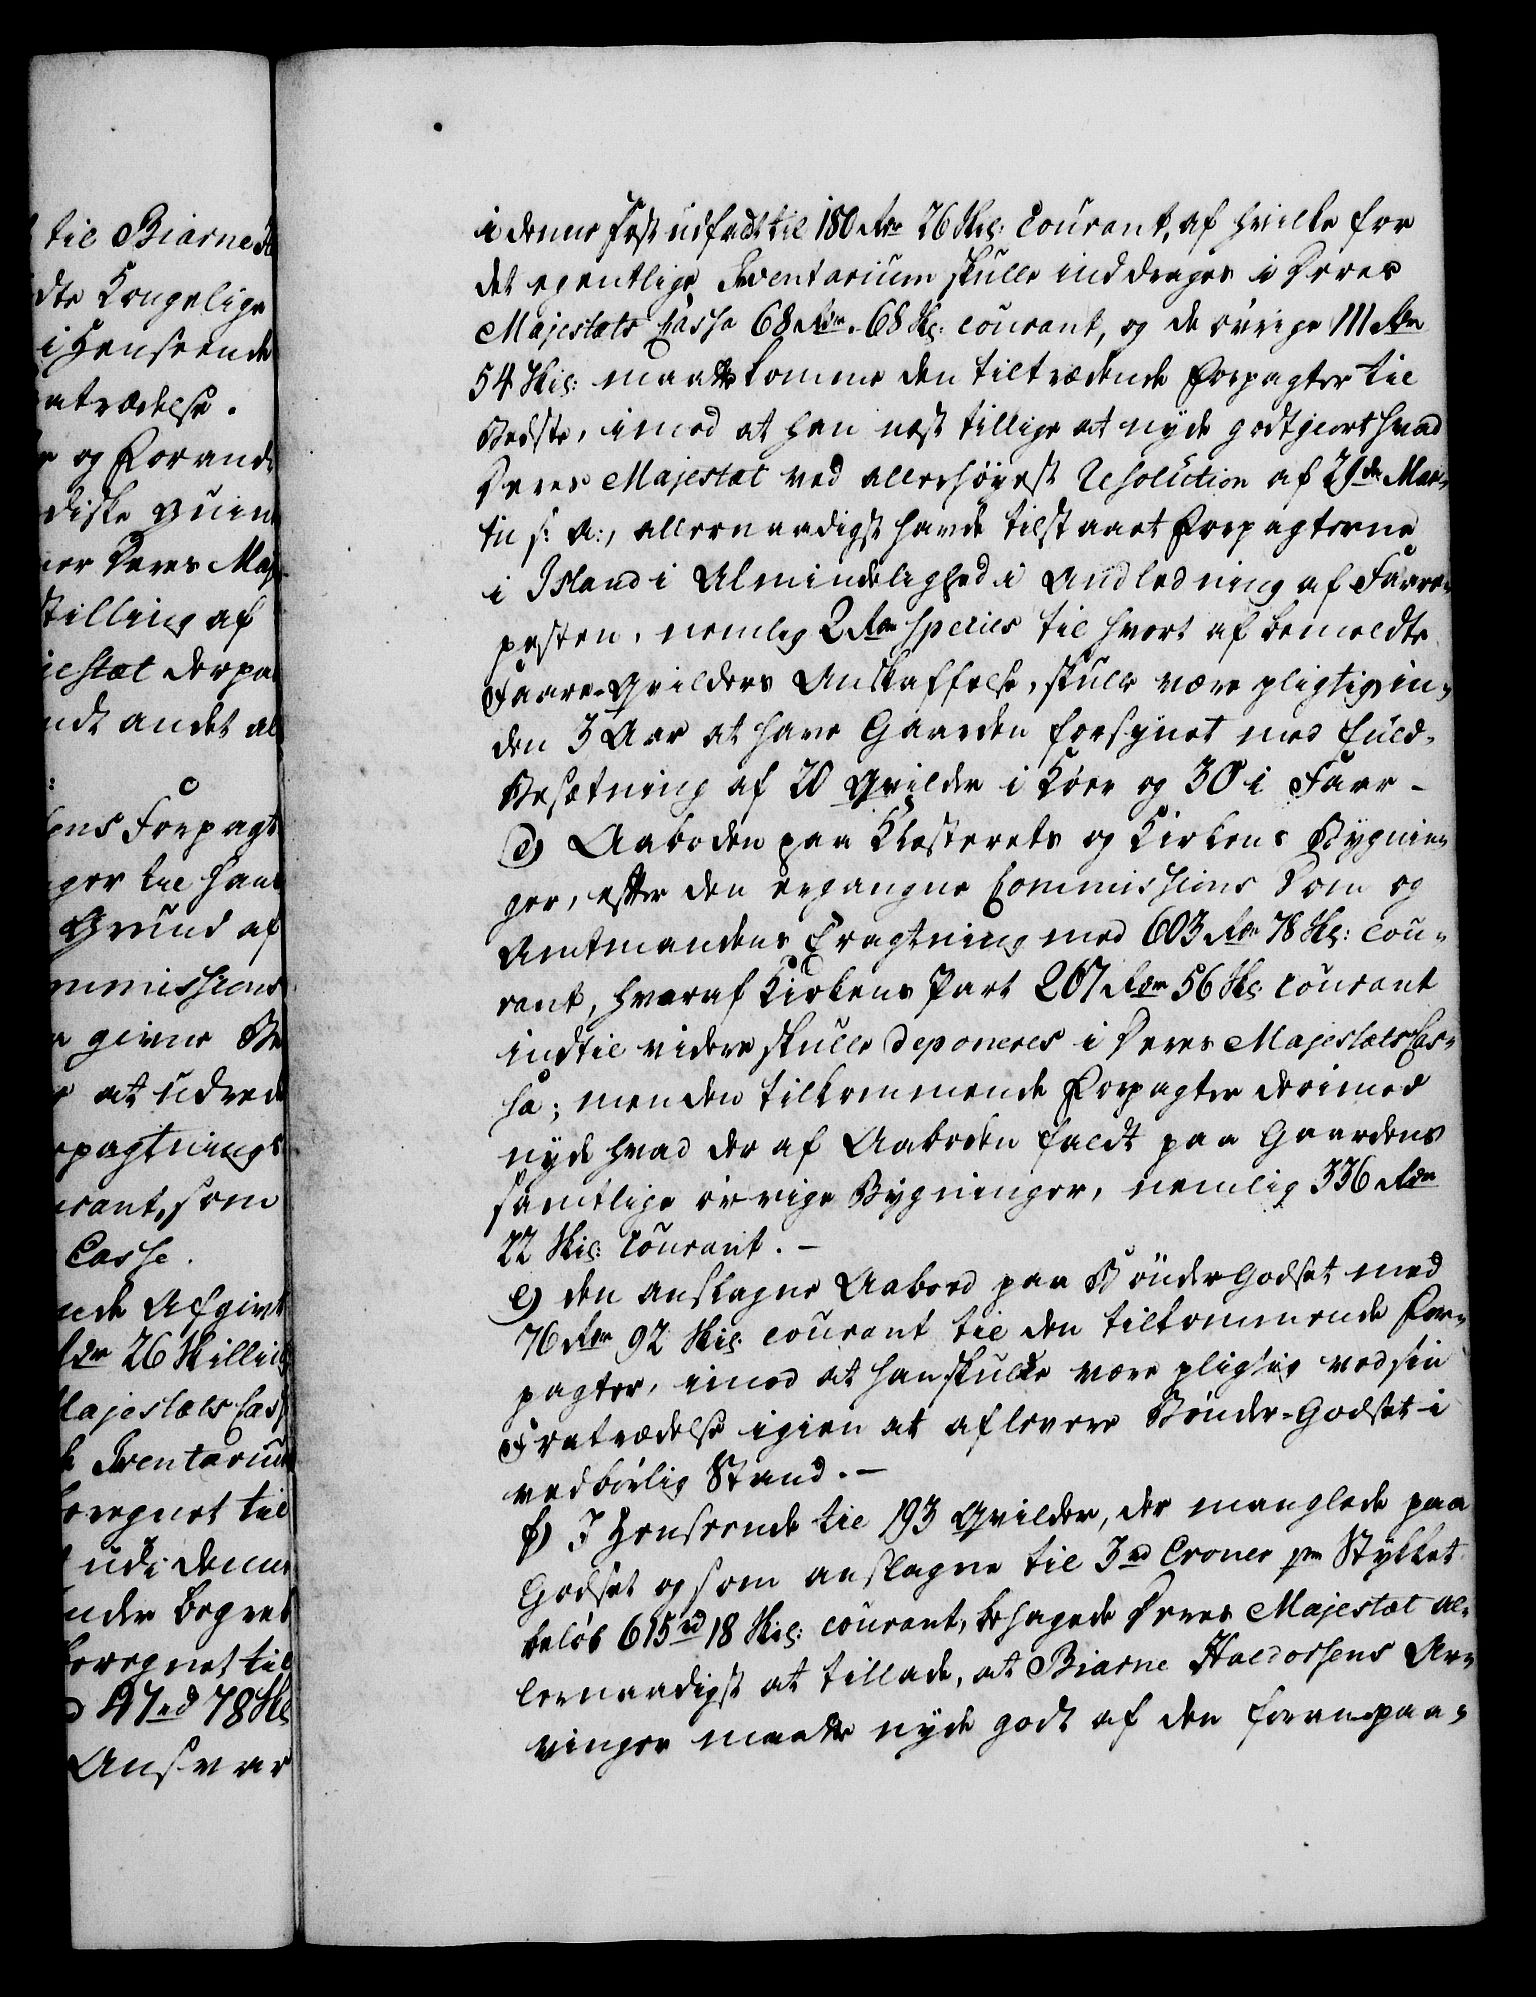 til Biarne H
dte Kongelige
i Henseende
atrædelse.
og Forand
diske Quin
ner Deres Maj
stilling af
jestæt derpaa
ndt andet al
ens Forpagt
ger til hans
Grund af
mmissions
givne Be
at udrede
rpagtnings
urant, som
Casse.
nde Afgivt
dr 26 Skilling
Majestæts Cass
Inventarium
beregnet til
udi denne
nder begreb
beregnet til
47 rd 78 Sk
Ansvar
i denne Post udfaldt til 180 Rdr 26 Skil: Courant, af hvilke for
det egentlige Inventarium skulle inddrages i Deres
Majestæts Cassa 68 Rdr. 68 Sk: courant, og de øvrige 111 Rdr
54 Skil: maatte komme den tiltrædende Forpagter til
Bedste, imod at han næst tillige at nyde godtgiort hvad
Deres Majestæt ved allerhøyest Resolution af 29de Mar-
tii s: a:, allernaadigst havde tilstaaet Forpagterne
i Island i Almindelighed i Andledning af Faare-
pesten, nemlig 2 Rdr species til hvert af bemeldte
Faare-Qvilders Anskaffelse, skulle være pligtig in-
den 3 Aar at have Gaarden forsynet med fuld-
Besætning af 20 Qvilder i Køer og 30 i Faar -
d) Aaboden paa Klosterets og Kirkens Bygnin-
ger, efter den ergangne Commissions Dom og
Amtmandens Fragtning med 603 Rdr 78 Sk: cou-
rant, hvoraf Kirkens Part 267 Rdr 56 Sk: courant
indtil videre skulle deponeres i Deres Majestæts Cas-
sa; men den tilkommende Forpagter derimod
nyde hvad der af Aaboden faldt paa Gaardens
samtlige øvrige Bygninger, nemlig 336 Rdr
22 Skil: Courant. -
e) den anslagne Aabod paa BønderGodset med
76 Rdr 92 Skil: courant til den tilkommende For-
pagter, imod at han skulde være pligtig ved sin
Fratrædelse igien at aflevere Bønder-Godset i
vedbørlig Stand. -
f) I Henseende til 193 Qvilder, der manglede paa
Godset og som anslagne til 3 rd Croner pr Stykket
beløb 615 rd 18 Skil: courant, behagede Deres Majestæt al-
lernaadigst at tillade, at Biarne Haldorsens Ar-
vinger maatte nyde godt af den foranpaa-